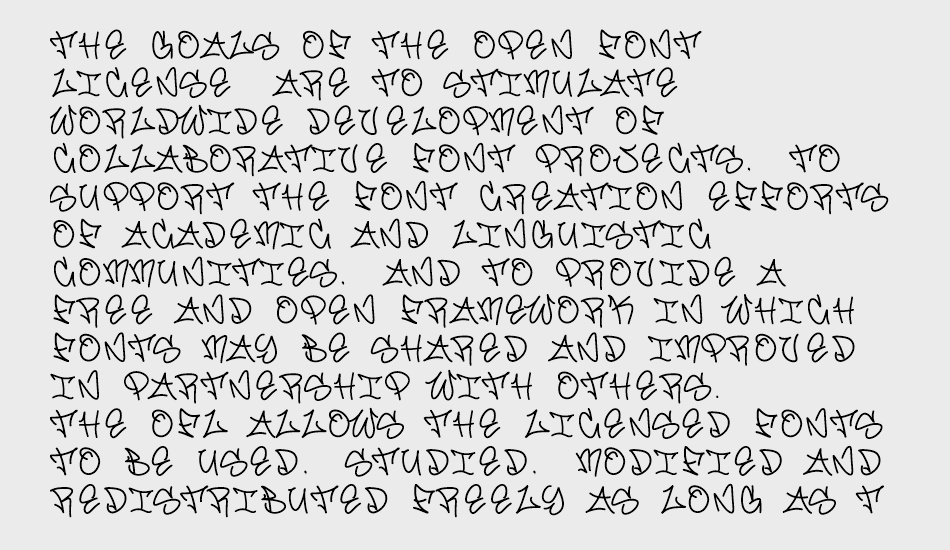 THE GOALS OF THE OPEN FONT
LICENSE  ARE TO STIMULATE
WORLDWIDE DEVELOPMENT OF
COLLABORATIVE FONT PROJECTS.  TO
SUPPORT THE FONT CREATION EFFORTS
OF ACADEMIC AND LINGUISTIC
COMMUNITIES.  AND TO PROVIDE A
FREE AND OPEN FRAMEWORK IN WHICH
FONTS MAY BE SHARED AND IMPROVED
IN PARTNERSHIP WITH OTHERS.
THE OFL ALLOWS THE LICENSED FONTS
TO BE USED.  STUDIED.  MODIFIED AND
REDISTRIBUTED FREELY AS LONG AS T